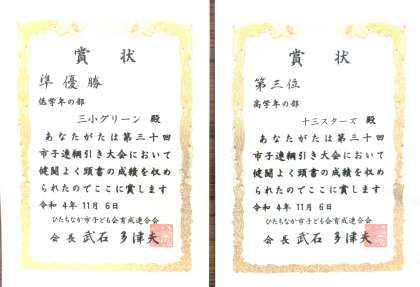 賞状
準優勝
低学年の部
三小グリーン 殿
あなたがたは第三十回
市子連綱引き大会において
健闘よく頭書の成績を収め
られたのでここに賞します
令和 4年 11月 6日
ひたちなか市子ども会育成連合会
会長 武石 多津夫
賞状
第三位
高学年の部
十三スターズ 殿
あなたがたは第三十回
市子連綱引き大会において
健闘よく頭書の成績を収め
られたのでここに賞します
令和 4年 11月 6日
ひたちなか市子ども会育成連合会
会長 武石 多津夫